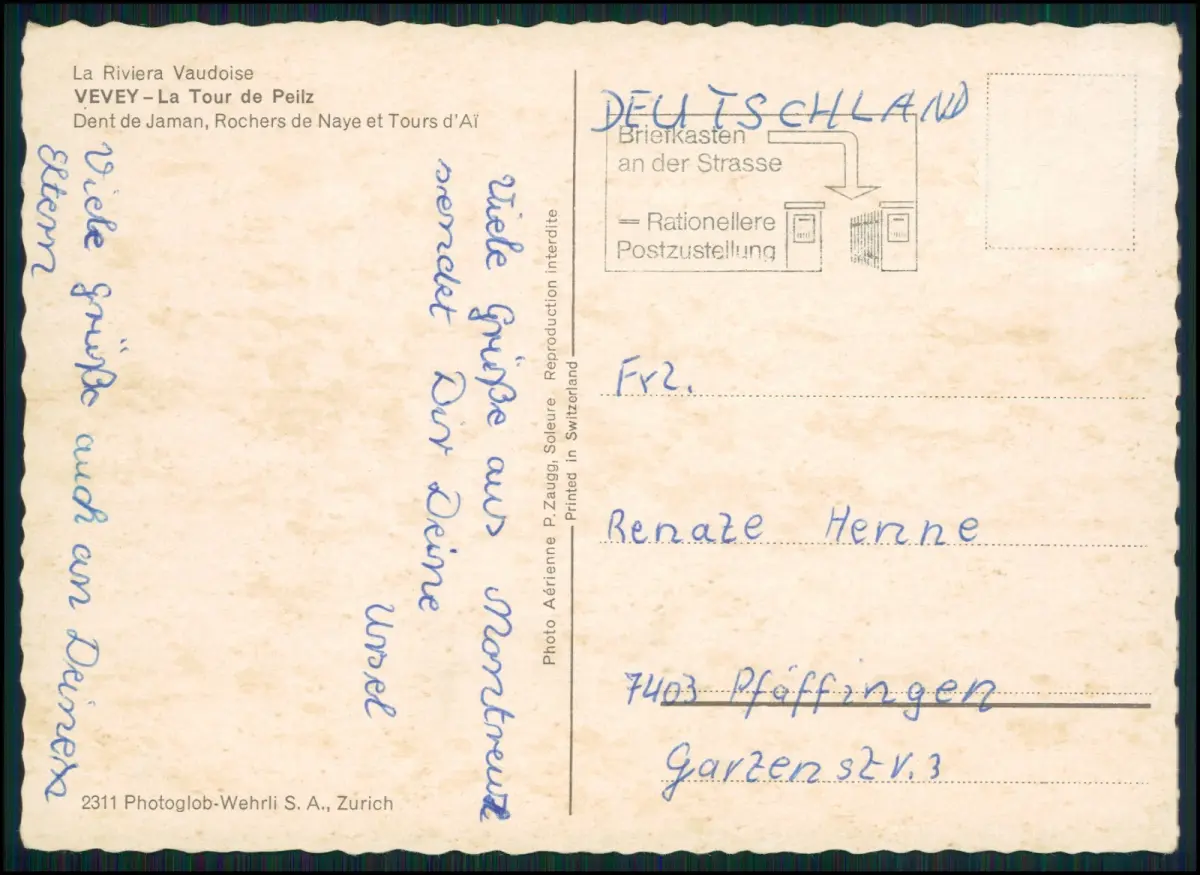 La Riviera Vaudoise
VEVEY – La Tour de Peilz
Dent de Jaman, Rochers de Naye et Tours d'Aï
Viele Grüße aus Montreux
sendet Dir Deine
Ursel
Viele Grüße auch an Deinen
Eltern
2311 Photoglob-Wehrli S. A., Zurich
Photo Aérienne P. Zaugg, Soleure Reproduction interdite
Printed in Switzerland
DEUTSCHLAND
Briefkasten
an der Strasse
= Rationellere
Postzustellung
Frl.
Renate Henne
7403 Pfäffingen
Gartenstr. 3